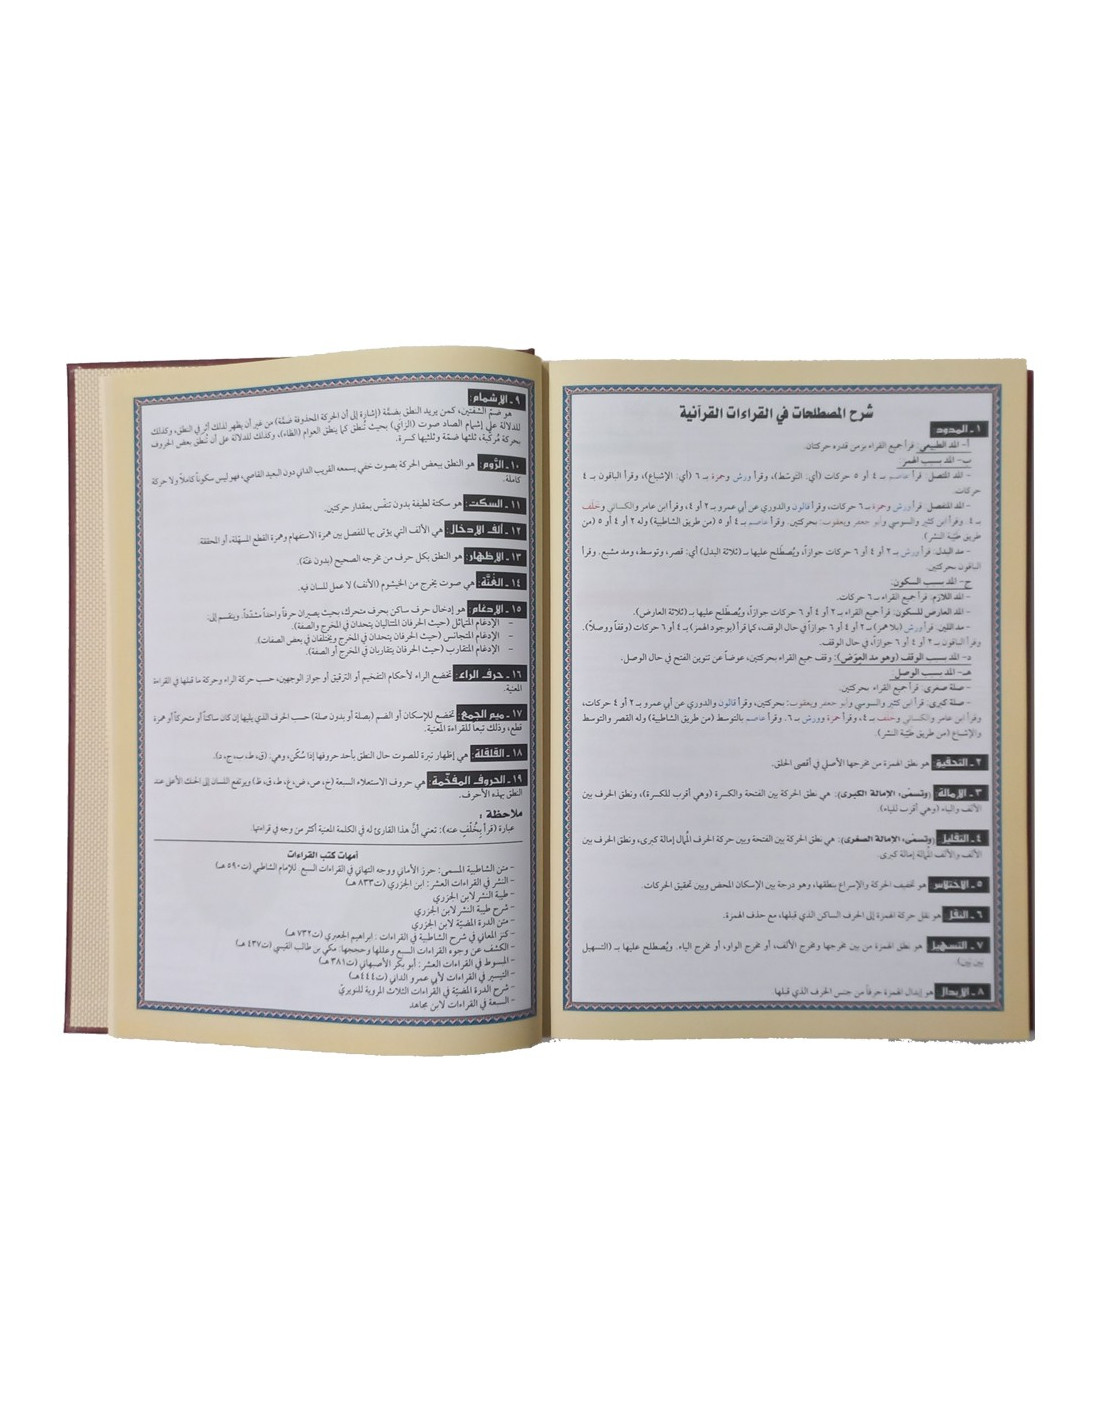 شرح المصطلحات في القراءات القرآنية
١ ـ المدود
أ- المد الطبيعي: قرأ جميع القراء بزمن قدره حركتان.
ب- المد بسبب الهمز:
- المد المتصل: قرأ عاصم بـ ٤ أو ٥ حركات (أي: التوسّط)، وقرأ ورش وحمزة بـ ٦ (أي: الإشباع)، وقرأ الباقون بـ ٤
حركات.
- المد المنفصل: قرأ ورش وحمزة بـ ٦ حركات، وقرأ قالون والدوري عن أبي عمرو بـ ٢ أو ٤، وقرأ ابن عامر والكسائي وخلف
بـ ٤. وقرأ ابن كثير والسوسي وأبو جعفر ويعقوب: بحركتين. وقرأ عاصم بـ ٤ أو ٥ (من طريق الشاطبية) وله ٢ أو ٤ أو ٥ (من
طريق طيّبة النشر)
- مد البدل: قرأ ورش بـ ٢ أو ٤ أو ٦ حركات جوازاً، ويُصطَلح عليها بـ (ثلاثة البدل) أي: قصر، وتوسط، ومد مشبع. وقرأ
الباقون بحركتين.
ج- المد بسبب السكون:
- المد اللازم: قرأ جميع القراء بـ ٦ حركات.
- المد العارض للسكون: قرأ جميع القراء بـ ٢ أو ٤ أو ٦ حركات جوازاً، ويُصطَلح عليها بـ (ثلاثة العارض).
- مد اللين: قرأ ورش (بلا همز) بـ ٢ أو ٤ أو ٦ جوازاً في حال الوقف، كما قرأ (بوجود الهمز) بـ ٤ أو ٦ حركات (وقفاً ووصلاً).
وقرأ الباقون بـ ٢ أو ٤ أو ٦ جوازاً، في حال الوقف.
د- المد بسبب الوقف (وهو مد العِوَض): وقف جميع القراء بحركتين، عوضاً عن تنوين الفتح في حال الوصل.
هـ- المد بسبب الوصل:
- صلة صغرى: قرأ جميع القراء بحركتين.
- صلة كبرى: قرأ ابن كثير والسوسي وأبو جعفر ويعقوب: بحركتين، وقرأ قالون والدوري عن أبي عمرو بـ ٢ أو ٤ حركات،
وقرأ ابن عامر والكسائي وخلف بـ ٤، وقرأ حمزة وورش بـ ٦. وقرأ عاصم بالتوسط (من طريق الشاطبية) وله القصر والتوسط
والإشباع (من طريق طيّبة النشر).
٢ ـ التحقيق: هو نطق الهمزة من مخرجها الأصلي في أقصى الحلق.
٣ ـ الإمالة: (وتسمّى، الإمالة الكبرى): هي نطق الحركة بين الفتحة والكسرة (وهي أقرب للكسرة)، ونطق الحرف بين
الألف والياء (وهي أقرب للياء).
٤ ـ التقليل: (وتسمّى، الإمالة الصغرى): هو نطق الحركة بين الفتحة وبين حركة الحرف المُمال إمالة كبرى، ونطق الحرف بين
الألف والألف المُمالة إمالة كبرى.
٥ ـ الاختلاس: هو تخفيف الحركة والإسراع بنطقها، وهو درجة بين الإسكان المحض وبين تحقيق الحركات.
٦ ـ النقل: هو نقل حركة الهمزة إلى الحرف الساكن الذي قبلها، مع حذف الهمزة.
٧ ـ التسهيل: هو نطق الهمزة من بين مخرجها ومخرج الألف، أو مخرج الواو، أو مخرج الياء. ويُصطلح عليها بـ (التسهيل
بين بين).
٨ ـ الإبدال: هو إبدال الهمزة حرفاً من جنس الحرف الذي قبلها.
٩ ـ الإشمام:
هو ضمّ الشفتين، كمن يريد النطق بضمّة (إشارة إلى أن الحركة المحذوفة ضمّة) من غير أن يظهر لذلك أثر في النطق، وكذلك
للدلالة على إشمام الصاد صوت (الزاي) بحيث تُنطق كما ينطق العوام (الظاء)، وكذلك للدلالة على أن تُنطق بعض الحروف
بحركة مُركّبة، ثلثها ضمّة وثلثيها كسرة.
١٠ ـ الرَّوم: هو النطق ببعض الحركة بصوت خفي يسمعه القريب الداني دون البعيد القاصي، فهو ليس سكوناً كاملاً ولا حركة
كاملة.
١١ ـ السكت: هو سكتة لطيفة بدون تنفّس بمقدار حركتين.
١٢ ـ ألف الإدخال: هي الألف التي يؤتى بها للفصل بين همزة الاستفهام وهمزة القطع المسهّلة، أو المحققة.
١٣ ـ الإظهار: هو النطق بكل حرف من مخرجه الصحيح (بدون غنّة).
١٤ ـ الغُنَّة: هي صوت يخرج من الخيشوم (الأنف) لا عمل للسان فيه.
١٥ ـ الإدغام: هو إدخال حرف ساكن بحرف متحرك، بحيث يصيران حرفاً واحداً مشدّداً. وينقسم إلى:
– الإدغام المتماثل (حيث الحرفان المتتاليان يتحدان في المخرج والصفة).
– الإدغام المتجانس (حيث الحرفان يتحدان في المخرج ويختلفان في بعض الصفات).
– الإدغام المتقارب (حيث الحرفان يتقاربان في المخرج أو الصفة).
١٦ ـ حرف الراء: تخضع الراء لأحكام التفخيم أو الترقيق أو جواز الوجهين، حسب حركة الراء وحركة ما قبلها في القراءة
المعنية.
١٧ ـ ميم الجمع: تخضع للإسكان أو الضم (بصلة أو بدون صلة) حسب الحرف الذي يليها إن كان ساكناً أو متحركاً أو همزة
قطع، وذلك تبعاً للقراءة المعنية.
١٨ ـ القلقلة: هي إظهار نبرة للصوت حال النطق بأحد حروفها إذا سُكّن، وهي: (ق، ط، ب، ج، د).
١٩ ـ الحروف المفخّمة: هي حروف الاستعلاء السبعة (خ، ص، ض، غ، ط، ق، ظ) ويرتفع اللسان إلى الحنك الأعلى عند
النطق بهذه الأحرف.
ملاحظة :
عبارة (قرأ بِخُلْفٍ عنه): تعني أنَّ هذا القارئ له في الكلمة المعنية أكثر من وجه في قراءتها.
أمهات كتب القراءات
- متن الشاطبية المسمى: حرز الأماني ووجه التهاني في القراءات السبع. للإمام الشاطبي (ت ٥٩٠ هـ)
- النشر في القراءات العشر: ابن الجزري (ت ٨٣٣ هـ)
- طيبة النشر لابن الجزري
- شرح طيبة النشر لابن الجزري
- متن الدرة المضيّة لابن الجزري
- كنز المعاني في شرح الشاطبية في القراءات : ابراهيم الجعبري (ت ٧٣٢ هـ)
- الكشف عن وجوه القراءات السبع وعللها وحججها: مكي بن طالب القيسي (ت ٤٣٧ هـ)
- المبسوط في القراءات العشر : أبو بكر الأصبهاني (ت ٣٨١ هـ)
- التيسير في القراءات لأبي عمرو الداني (ت ٤٤٤ هـ)
- شرح الدرة المضيّة في القراءات الثلاث المروية للنويريّ
- السبعة في القراءات لابن مجاهد